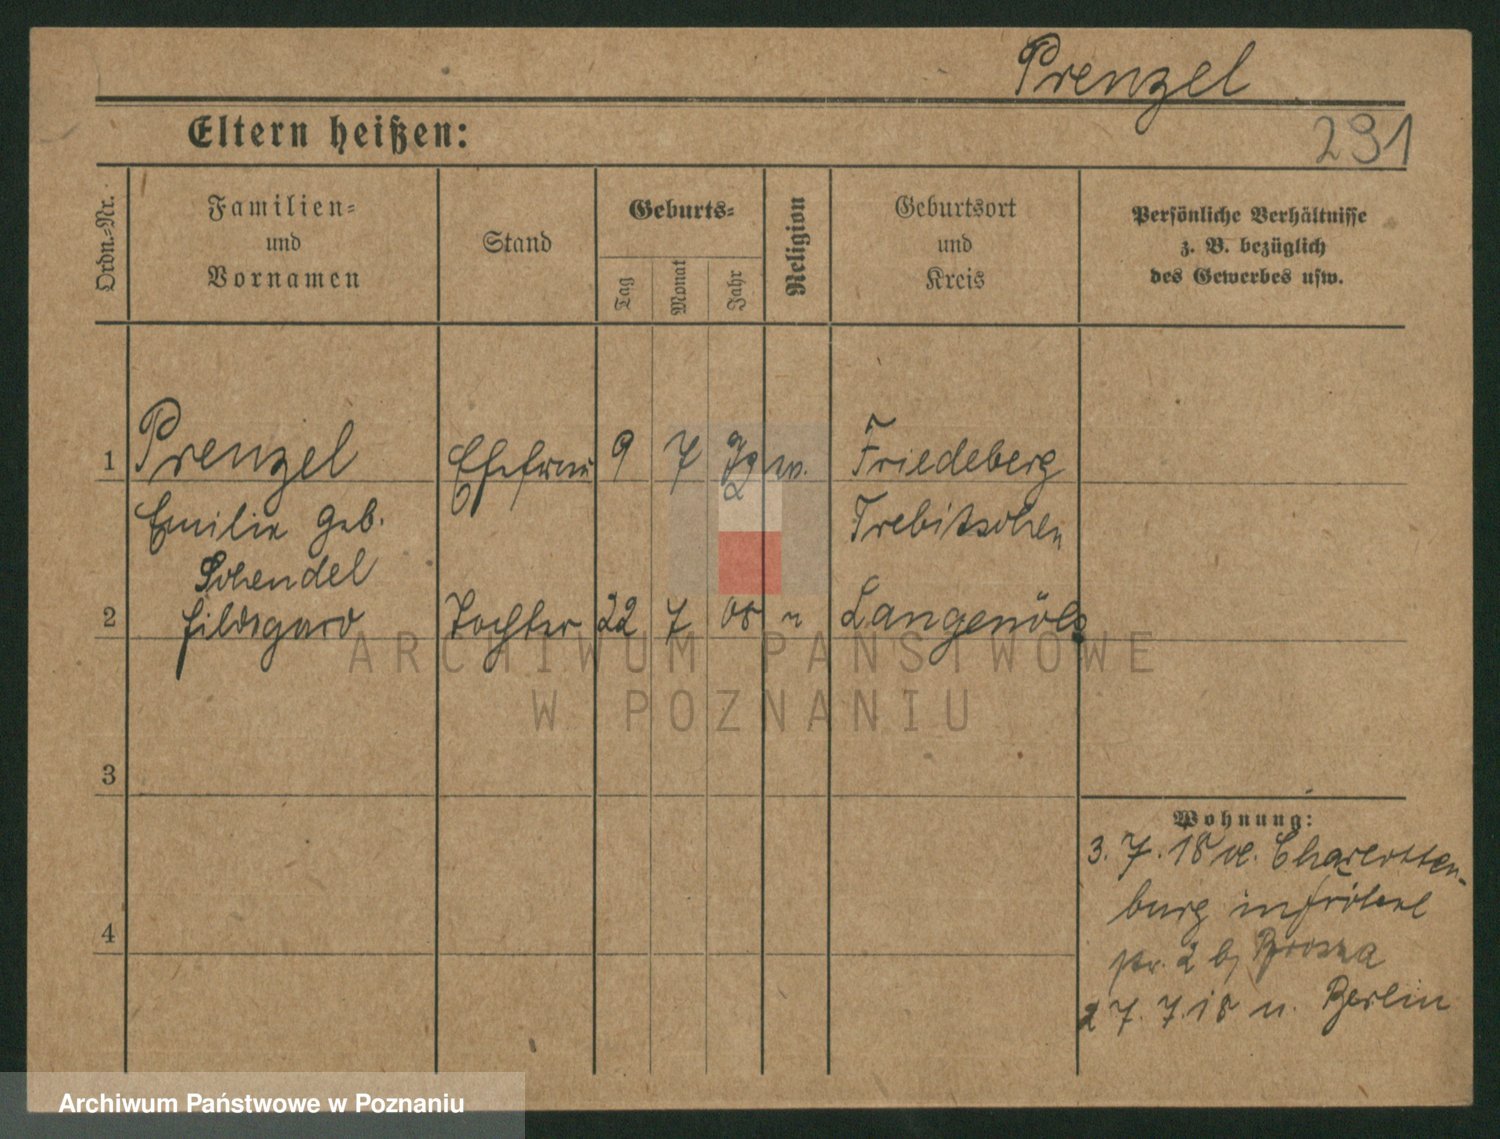 Prenzel
Eltern heißen:
291
Ordn.-Nr.
Familien-
und
Vornamen
Stand
Geburts-
Tag
Monat
Jahr
Religion
Geburtsort
und
Kreis
Persönliche Verhältnisse
z. B. bezüglich
des Gewerbes usw.
1 Prenzel Ehefrau 9 7 Friedeberg
Emilie geb. Trebitschen
Schendel
2 Hildegard Tochter 22 7 08 " Langenöls
3
4
Wohnung:
3. 7. 18 v. Charlotten-
burg
str. 2 b/
27. 7. 18 n. Berlin
ARCHIWUM PAŃSTWOWE
W POZNANIU
Archiwum Państwowe w Poznaniu